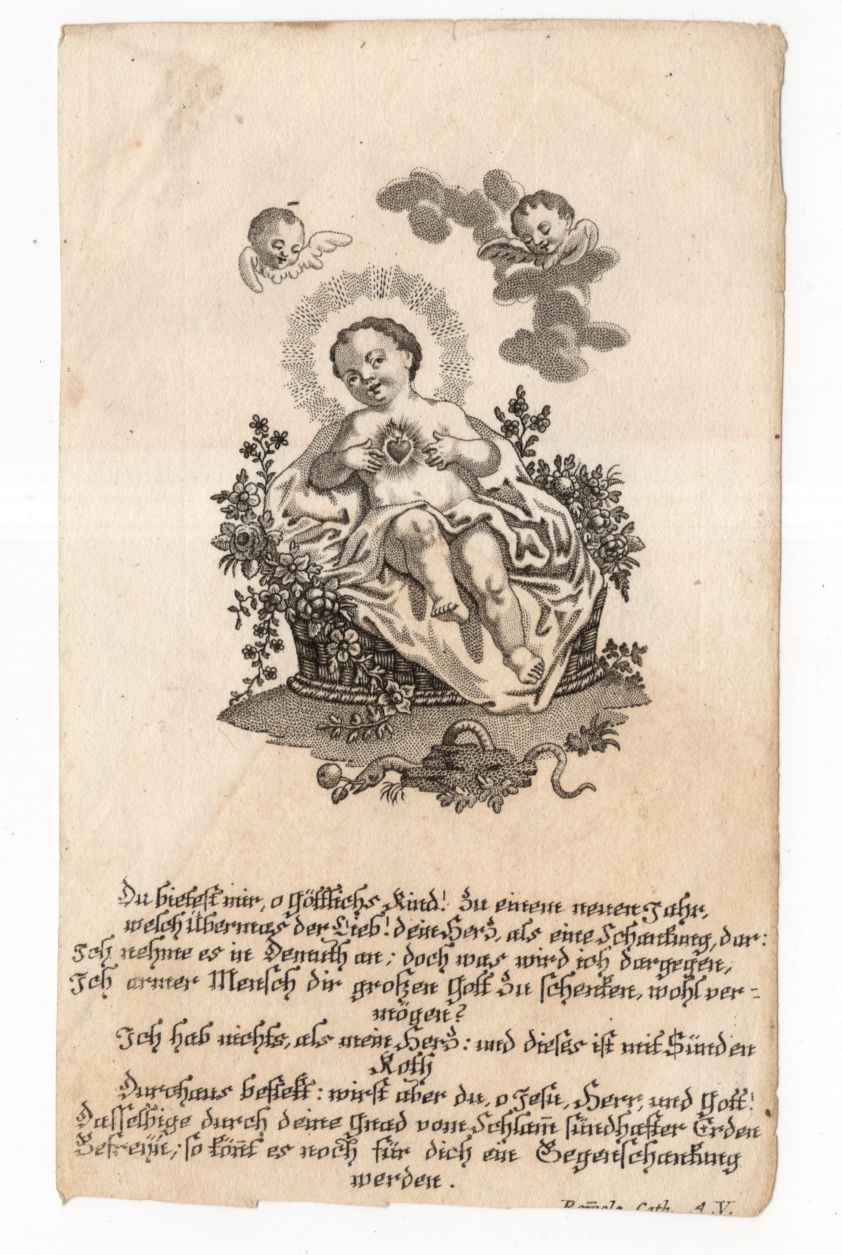 Du bietest mir, o göttlichs Kind! Zu einem neuen Jahr,
welch Übermas der Lieb! dein Herz, als eine Schankung, dar:
Ich nehme es in Demuth an; doch was wird ich dargegen,
Ich armer Mensch dir großen Gott Zu schenken, wohl ver=
mögen?
Ich hab nichts, als mein Herz: und dieses ist mit Sünden
Koth
Durchaus beflekt: wirst aber du, o Jesu, Herr, und Gott!
Dasselbige durch deine Gnad vom Schlam̅ sündhafter Erden
Befreyn; so kön̅t es noch für dich ein Gegenschankung
werden.
Cath. A. V.